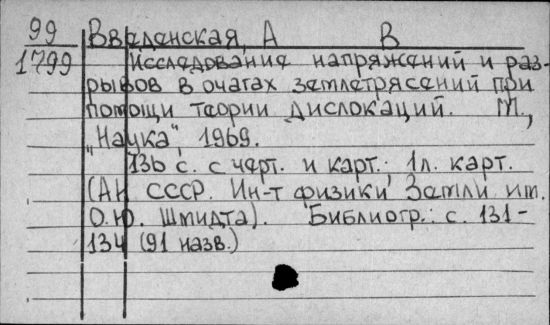 99 Введенская, А В
1799 Исследование напряжений и раз-
рывов в очагах землетрясений при
помощи теории дислокаций. М.,
„Наука", 1969.
136 с. с черт. и карт.; 1 л. карт.
(АН СССР. Ин-т физики Земли им.
О.Ю. Шмидта). Библиогр.: с. 131-
134 (91 назв.)